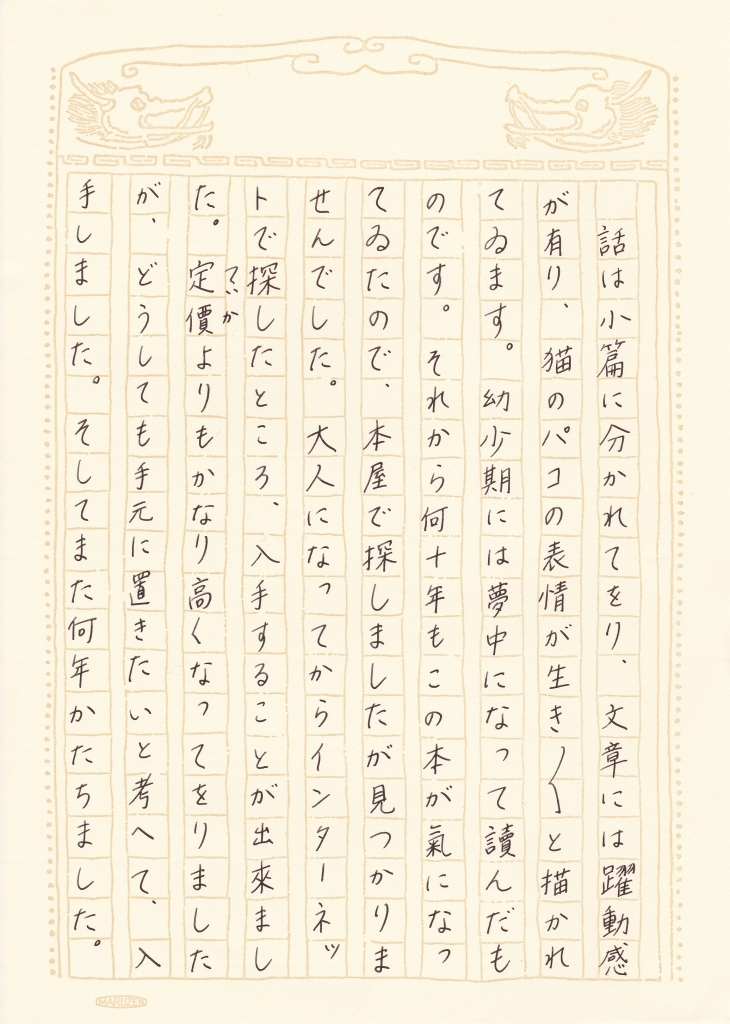 話は小篇に分かれてをり、文章には躍動感
が有り、猫のパコの表情が生き〱と描かれ
てゐます。幼少期には夢中になって讀んだも
のです。それから何十年もこの本が氣になっ
てゐたので、本屋で探しましたが見つかりま
せんでした。大人になってからインターネッ
トで探したところ、入手することが出來まし
ていか
た。定價よりもかなり高くなってをりました
が、どうしても手元に置きたいと考へて、入
手しました。そしてまた何年かたちました。
MARUZEN